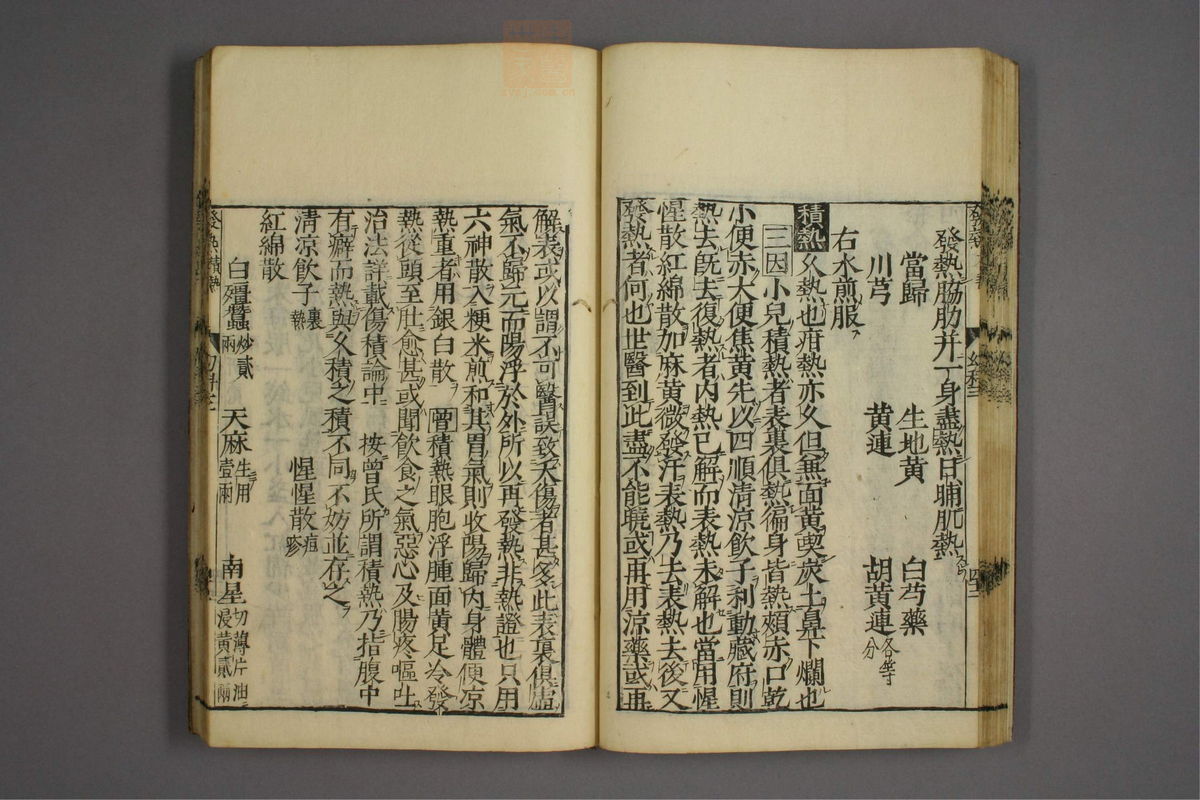 發熱脇肋并一身盡熱日晡肌熱
當歸　生地黄　白芍藥
川芎　黄連　胡黄連各等分
右水煎服
積熱 久熱也疳熱亦久但無面黄喫炭土鼻下爛也
三因 小兒積熱者表裏俱熱徧身皆熱頰赤口乾
小便赤大便焦黄先以四順清涼飲子利動藏府則
熱去旣去復熱者内熱已解而表熱未解也當用惺
惺散紅綿散加麻黄微發汗表熱乃去表熱去後又
發熱者何也世醫到此盡不能曉或再用涼藥或再
解表或以謂不可醫誤致夭傷者甚多此表裏俱虛
氣不歸元而陽浮於外所以再發熱非熱證也只用
六神散入粳米煎和其胃氣則收陽歸内身體便凉
熱重者用銀白散 曾 積熱眼胞浮腫面黄足冷發
熱從頭至肚愈甚或聞飲食之氣惡心及腸疼嘔吐
治法詳載傷積論中　按曾氏所謂積熱乃指腹中
有癖而熱與久積之積不同不妨並存之
清凉飲子裏熱　惺惺散痘疹
紅綿散
白殭蠶炒貳兩　天麻生用壹兩　南星切薄片油浸黄貳兩